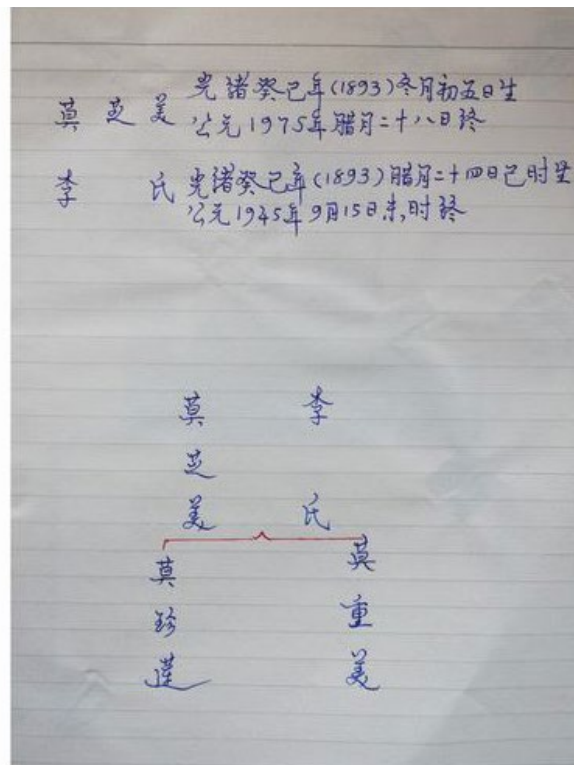 莫芝美 光诸癸己年(1893)冬月初五日生
公元1975年腊月二十八日终
李氏 光诸癸己年(1893)腊月二十四日己时生
公元1945年9月15日未,时终
莫芝美 李氏
莫珍莲 莫重美